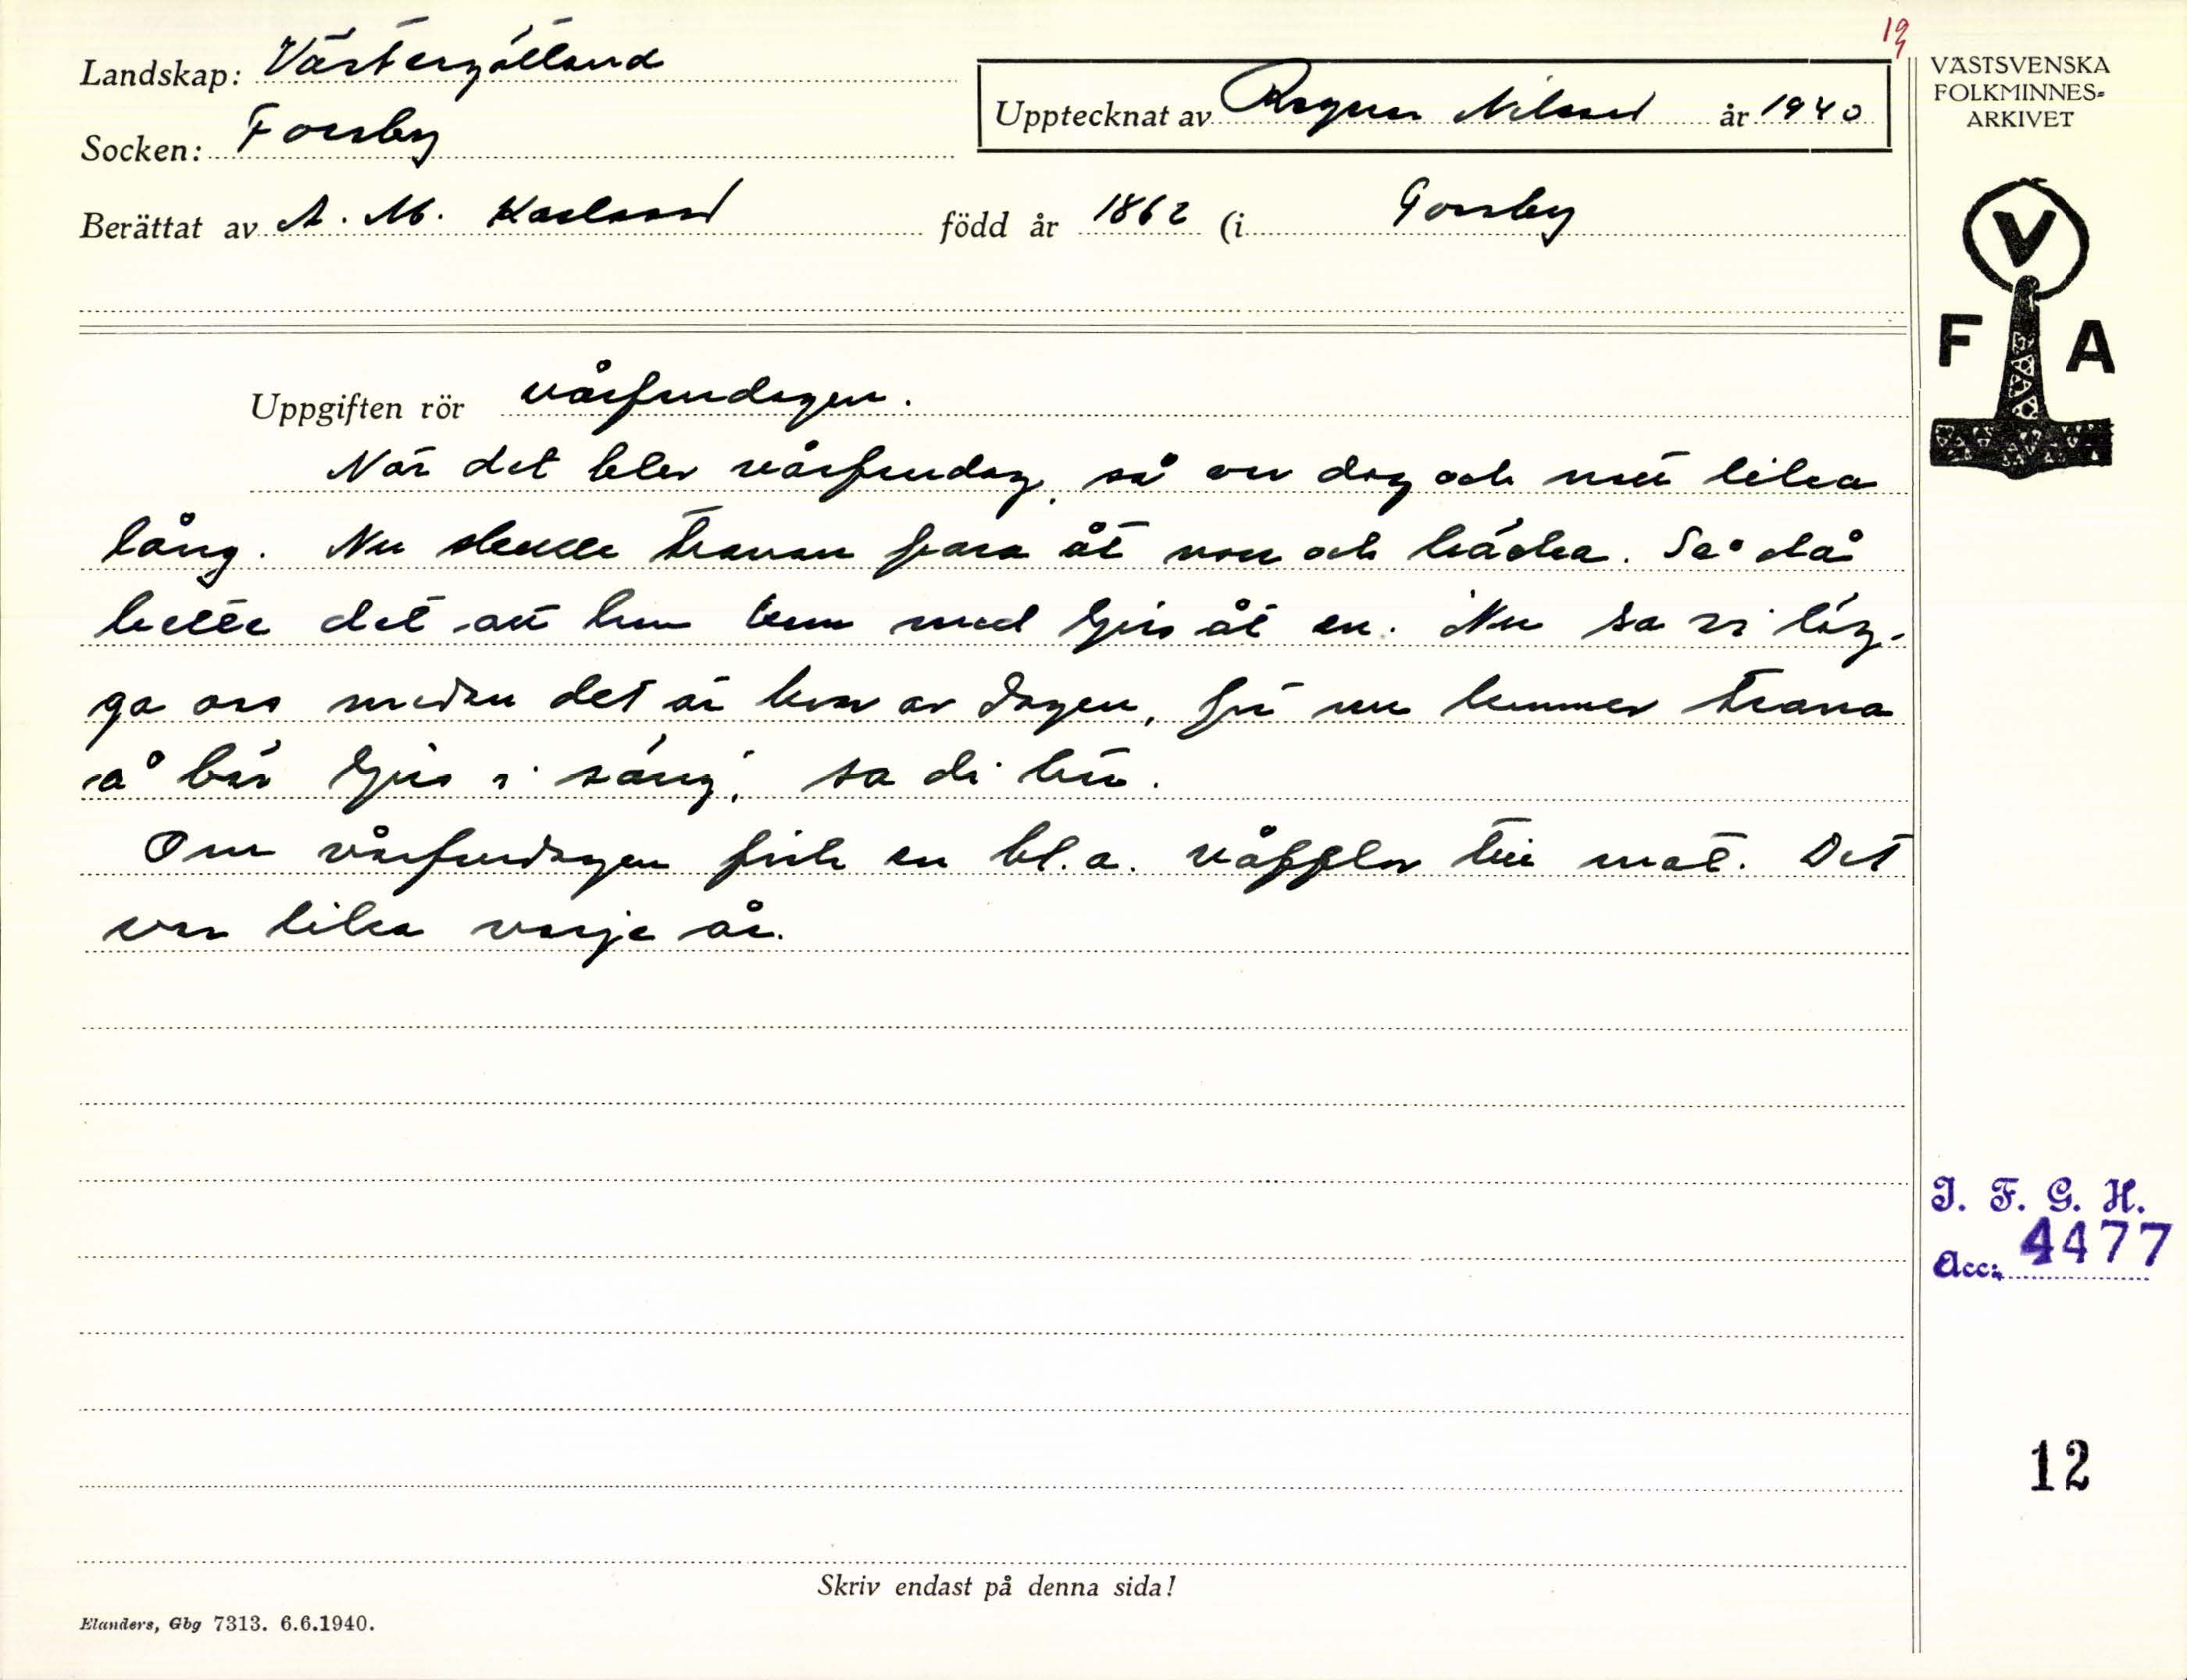 19
Landskap: Västergötland
Upptecknat av Ragnar Nilsson år 1940
VÄSTSVENSKA
FOLKMINNES-
ARKIVET
Socken: Forsby
Berättat av A. M. Karlsson född år 1862 (i Forsby
V
F A
Uppgiften rör vårfrudagen.
När det blev vårfrudag, så var dag och natt lika
lång. Nu skulle tranan fara åt norr och häcka. Sedå
hette det att hon kom med ljus åt en. "Nu sa vi läg-
ga oss medan det är kvar av dagen, för nu kommer trana
å bär ljus i säng", sa di här.
Om vårfrudagen fick en bl.a. våfflor till mat. Det
var lika varje år.
I. F. G. H.
Acc: 4477
12
Skriv endast på denna sida!
Elanders, Gbg 7313. 6.6.1940.